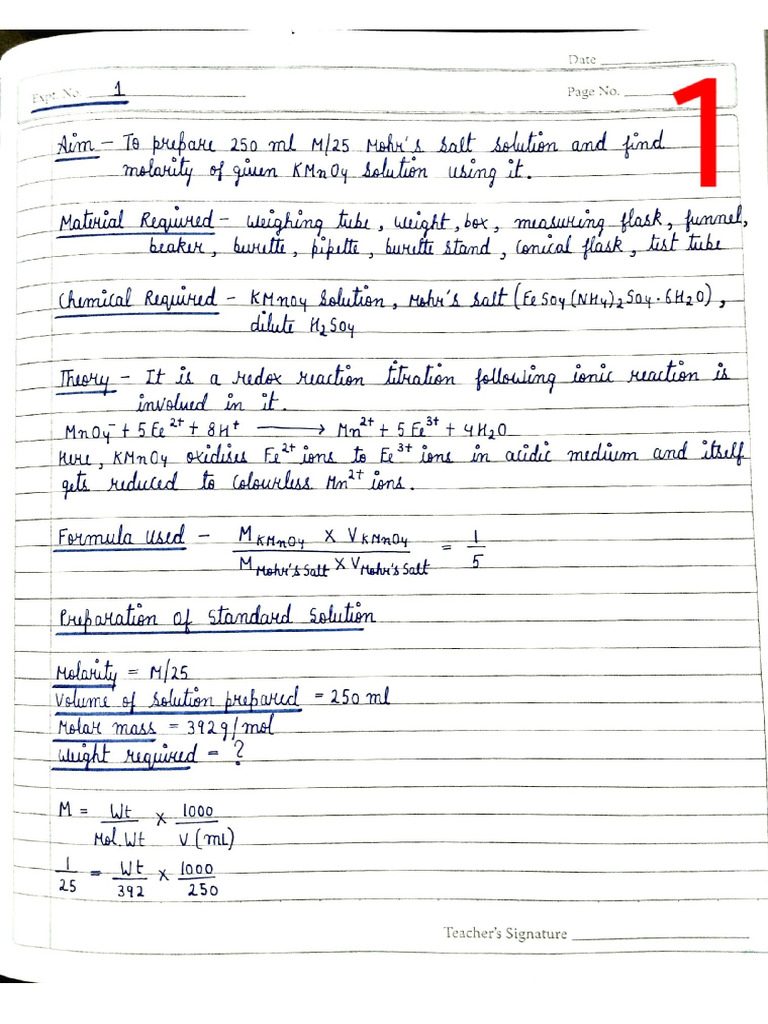 Date
1
Expt. No. 1
Page No.
Aim – To prepare 250 ml M/25 Mohr's salt solution and find
molarity of given KMnO4 solution using it.
Material Required – Weighing tube, weight, box, measuring flask, funnel,
beaker, burette, pipette, burette stand, conical flask, test tube
Chemical Required – KMnO4 solution, Mohr's salt (FeSO4(NH4)2SO4·6H2O),
dilute H2SO4
Theory – It is a redox reaction titration following ionic reaction is
involved in it.
MnO4⁻ + 5Fe²⁺ + 8H⁺ ⟶ Mn²⁺ + 5Fe³⁺ + 4H2O
Here, KMnO4 oxidises Fe²⁺ ions to Fe³⁺ ions in acidic medium and itself
gets reduced to colourless Mn²⁺ ions.
Formula used – M KMnO4 X V KMnO4 / M Mohr's Salt X V Mohr's Salt = 1/5
Preparation of Standard Solution
Molarity = M/25
Volume of solution prepared = 250 ml
Molar mass = 392g/mol
Weight required = ?
M = Wt/Mol.Wt X 1000/V(mL)
1/25 = Wt/392 X 1000/250
Teacher's Signature